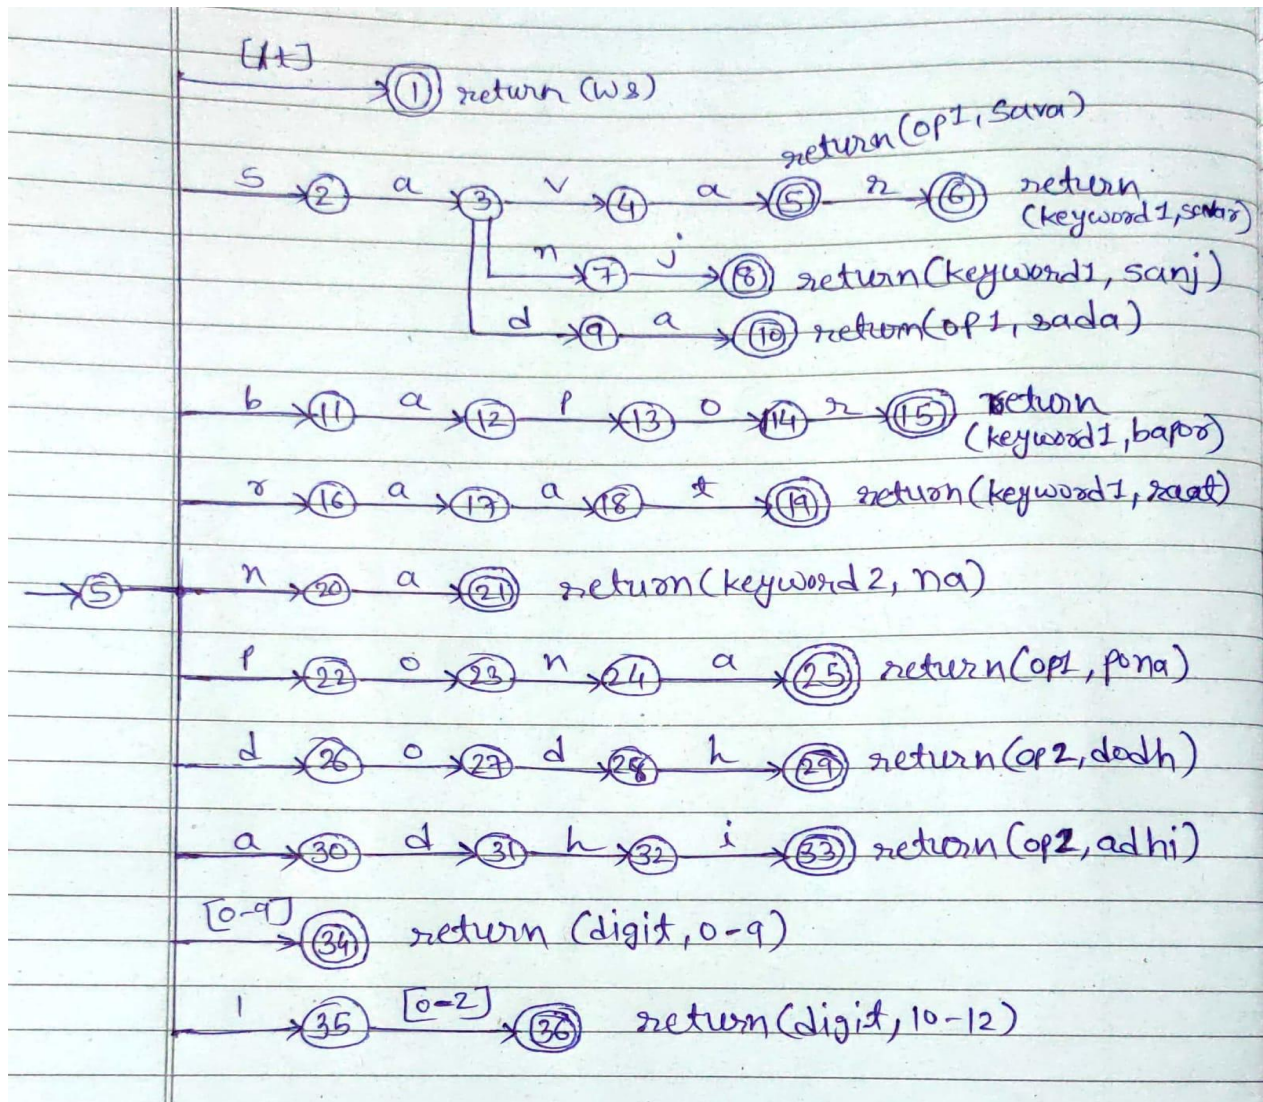 [/t]
1 return (ws)
return(op1, sava)
s 2 a 3 v 4 a 5 r 6 return
(keyword1, savar)
n 7 j 8 return(keyword1, sanj)
d 9 a 10 return(op1, sada)
b 11 a 12 p 13 o 14 r 15 return
(keyword1, bapor)
r 16 a 17 a 18 t 19 return(keyword1, raat)
S n 20 a 21 return(keyword2, na)
p 22 o 23 n 24 a 25 return(op1, pona)
d 26 o 27 d 28 h 29 return(op2, dodh)
a 30 d 31 h 32 i 33 return(op2, adhi)
[0-9] 34 return (digit, 0-9)
1 35 [0-2] 36 return(digit, 10-12)